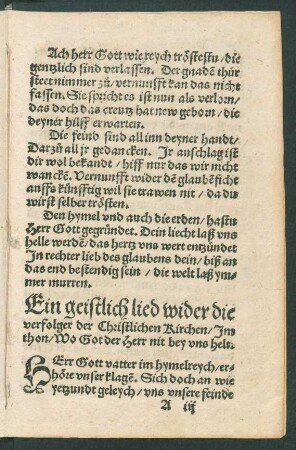 Ach herr Gott wie reych tröstestu / die
gentzlich sind verlassen. Der gnadē thür
steet nimmer zů / vernunfft kan das nicht
fassen. Sie spricht es ist nun als verlorn /
das doch das creutz hat new geborn / die
deyner hilff erwarten.
Die feind sind all inn deyner handt /
Darzů all jr gedancken. Ir anschlag ist
dir wol bekandt / hilff nur das wir nicht
wanckē. Vernunfft wider dē glaubē ficht
auffs künfftig wil sie trawen nit / da du
wirst selber trösten.
Den hymel vnd auch die erden / hastu
Herr Gott gegründet. Dein liecht laß vns
helle werdē / das hertz vns wert entzündet
In rechter lieb des glaubens dein / biß an
das end bestendig sein / die welt laß ym-
mer murren.
Ein geistlich lied wider die
verfolger der Christlichen Kirchen / Im
thon / Wo Got der Herr nit bey vns helt.
HErr Gott vatter im hymelreych / er-
höre vnser klagē. Sich doch an wie
yetzundt geleych / vns vnsere feinde
A iij